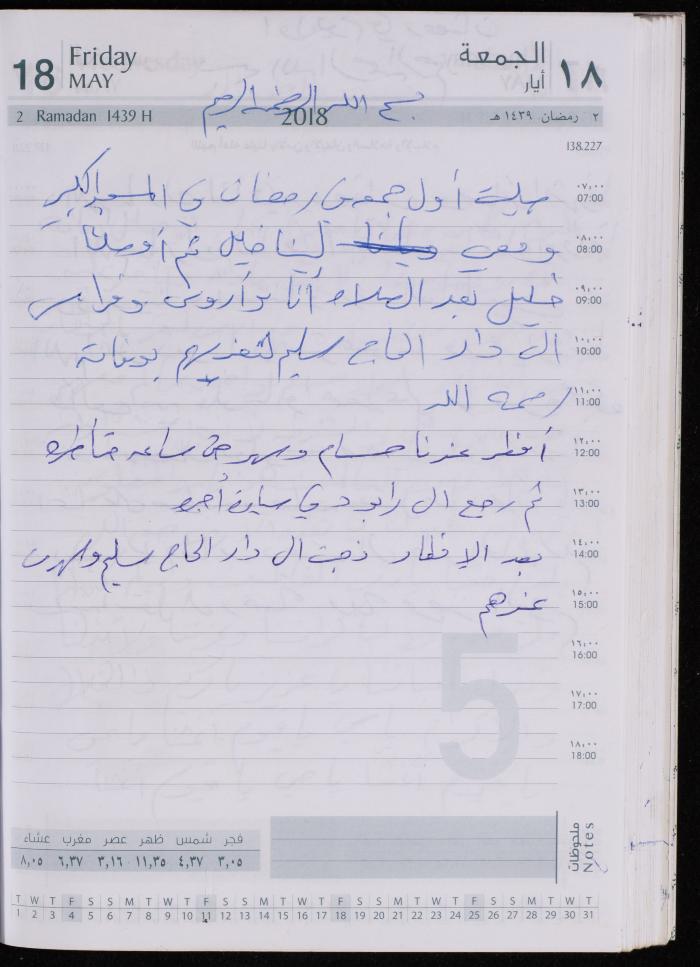 18 Friday MAY الجمعة أيار ١٨
2 Ramadan 1439 H 2018 ٢ رمضان ١٤٣٩ هـ
بسم الله الرحمن الرحيم
138.227
صليت أول جمعة من رمضان في المسجد الكبير
٠٧:٠٠ 07:00
ومعي لينا خليل ثم أوصلنا
٠٨:٠٠ 08:00
خليل بعد الصلاة أنا وأروى وفراس
٠٩:٠٠ 09:00
الى دار الحاج سليم لتعزيتهم بوفاة
١٠:٠٠ 10:00
رحمه الله
١١:٠٠ 11:00
أفطر عندنا حسام وسهر حتى ساعة متأخرة
١٢:٠٠ 12:00
ثم رجع الى في سيارة أجرة
١٣:٠٠ 13:00
بعد الإفطار ذهبت الى دار الحاج سليم وسهرت
١٤:٠٠ 14:00
عندهم
١٥:٠٠ 15:00
١٦:٠٠ 16:00
5
١٧:٠٠ 17:00
١٨:٠٠ 18:00
ملحوظات Notes
فجر شمس ظهر عصر مغرب عشاء
٣,٠٥ ٤,٣٧ ١١,٣٥ ٣,١٦ ٦,٣٧ ٨,٠٥
T W T F S S M T W T F S S M T W T F S S M T W T F S S M T W T
1 2 3 4 5 6 7 8 9 10 11 12 13 14 15 16 17 18 19 20 21 22 23 24 25 26 27 28 29 30 31